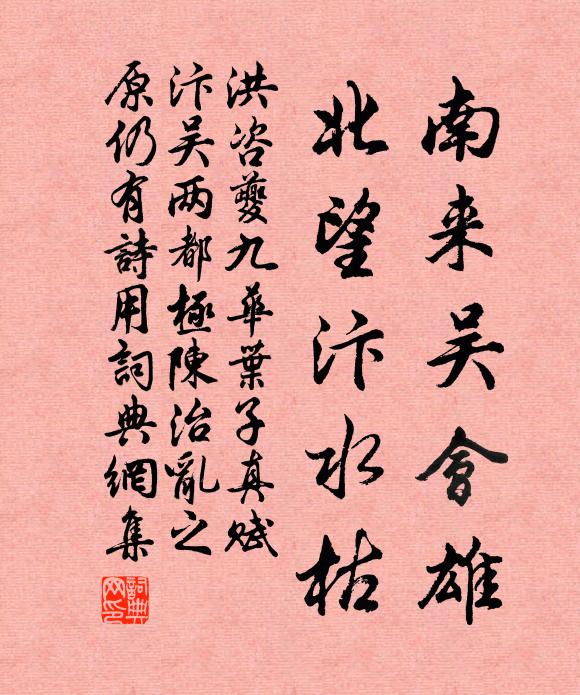 南来吴會雄
北望汴水枯
洪咨夔九華葉子真賦
汴吴两都極陳治亂之
原仍有詩用詞典網集
詞典
网印